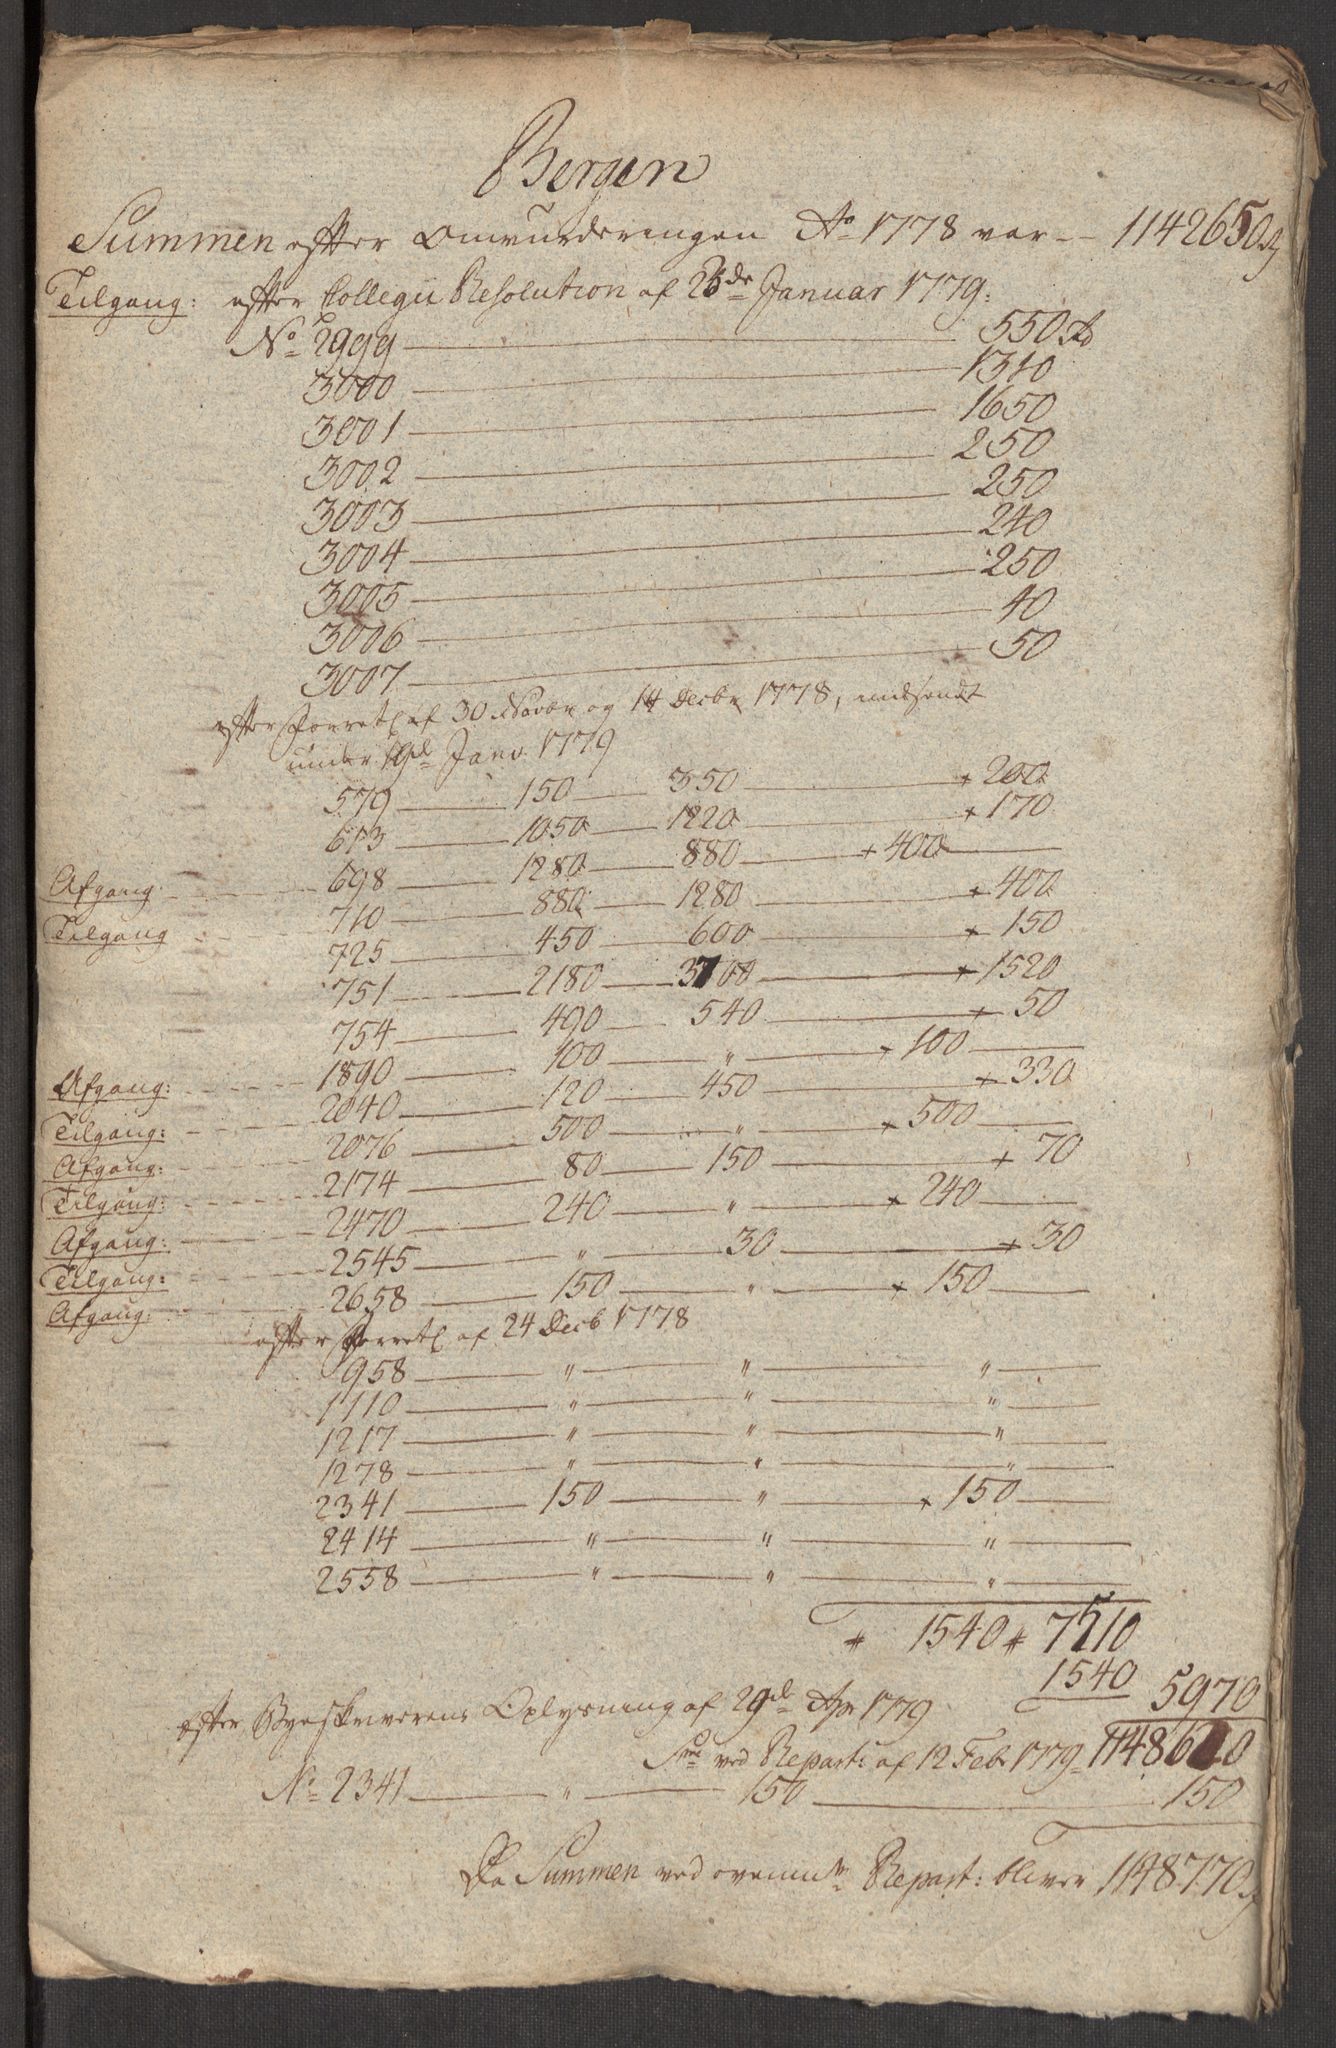 Bergen
Summen efter Omvurderingen Ao 1778 var -- 1142650 rd
Tilgang: efter Collegii Resolution af 23de Januar 1779:
No 2999 — 550 rd
3000 — 1310
3001 — 1650
3002 — 250
3003 — 250
3004 — 240
3005 — 250
3006 — 40
3007 — 50
efter Forretl af 30 Novbr og 14 Decbr 1778, indsendt
under 19de Janv. 1779
579 — 150 — 350 — + 200
613 — 1050 — 1220 — + 170
Afgang: 698 — 1280 — 880 — + 400 —
Tilgang 710 — 880 — 1280 — + 400
725 — 450 — 600 — + 150
751 — 2180 — 3700 — + 1520
754 — 490 — 540 — + 50
Afgang: 1890 — 100 — " — + 100 —
Tilgang: 2040 — 120 — 450 — + 330
Afgang: 2076 — 500 — " — + 500 —
Tilgang: 2174 — 80 — 150 — + 70
Afgang: 2470 — 240 — " — + 240 —
Tilgang: 2545 — " — 30 — + 30
Afgang: 2658 — 150 — " — + 150 —
efter Forretl af 24 Decb 1778
958 — " — " — " —
1110 — " — " — " —
1217 — " — " — " —
1278 — " — " — " —
2341 — 150 — " — + 150 —
2414 — " — " — " —
2558 — " — " — " —
+ 1540 + 7510
1540 5970
efter Byeskriverens Oplysning af 29de Apr 1779
Sme ved Reparti af 12 Feb 1779 1148620
No 2341 — " — 150 — 150
Da Summen ved ovennte Repart: bliver 1148770 rd